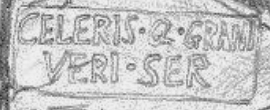 CELERIS·Q·GRANI
VERI·SER